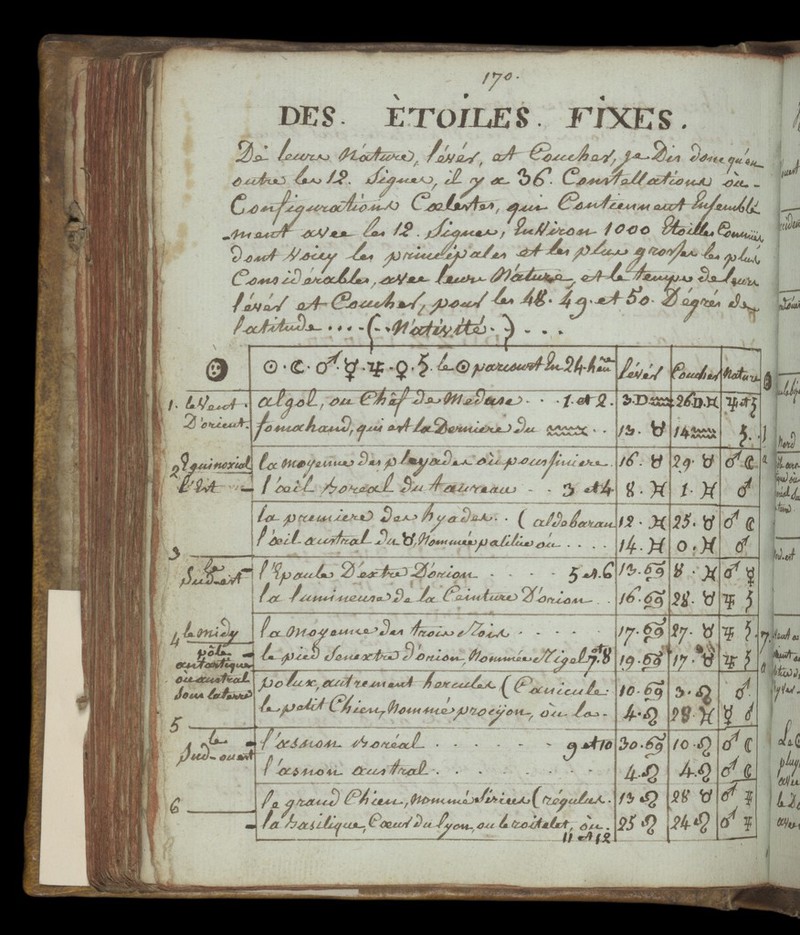 170.
DES. ÈTOILES. FIXES.
De leurs Nature, léver, et Coucher, je Dis donc qu'en
outre les 12. Signes, il y a 36. Constellations où-
Configurations Cœlestes, qui Contiennent Ensemble
-ment avec les 12. Signes, EnViron 1000 Etoilles Connües
Dont Voicy les principales et les plus grosses les plus
Considérables, avec leurs Nature, et le temps de leurs
léver et Coucher, pour les 48. 49. et 50. Dégrés de
latitude....(..Nativité.)...
☉.☾.♂.☿.♃.♀.♄. le ☉ parcourt En 24. heures léver Coucher Nature
1. le Vent. algol, ou Chéf De Meduse... 1. et 2. 3.D♒ 26D.♓ ♃ et ♄
D'orient. fomahand, qui est la Derniere du ♒.. 13. ♉ 14 ♒ ♄.
2 Equinoxial la moyenne Des pleyades où poussiniere. 16. ♉ 29. ♉ ♂ ☾
l'Est l'œil Boreal Du taureau - - 3 et 4 8. ♓ 1. ♓ ♂
la premiere Des hyades.. ( aldebaran 12. ♓ 25. ♉ ♂ ☾
l'œil austral Du ♉, Nommée palilice où.... 14. ♓ 0. ♓ ♂
3 le Sud-est l'Epaule D'extre D'orion - - - - 5 et. 6 13. ♋ 8. ♓ ♂ ☿
la lumineuse De la Ceinture D'orion.. 16. ♋ 28. ♉ ♃ ♄
4 le midy la moyenne Des trois Rois - - - - - 17. ♋ 27. ♉ ♃ ♄.
pôle antartique le pied Senextre d'orion, Nommée Rigel 7. et 8 19. ♋ 17. ♉ ♃ ♄
où austral polux, autrement hercules ( Canicule 10. ♋ 3. ♌ ♂
sous la terre le petit Chien, Nommé procyon, où la. 4. ♌ 28. ♓ ☿ ♂
5 le Sud-ouest l'asnon Boréal - - - - - - 9 et 10 30. ♋ 10. ♌ ♂ ☾
l'asnon austral. - - - - - - 4. ♌ 4. ♌ ♂ ☾
6 le grand Chien, Nommé Sirius ( régulus. 13 ♌ 28 ♉ ♂ ♃
la Basilique, Cœur du lyon, ou le roitelet, où. 25 ♌ 24 ♌ ♂ ♃
11 et 12